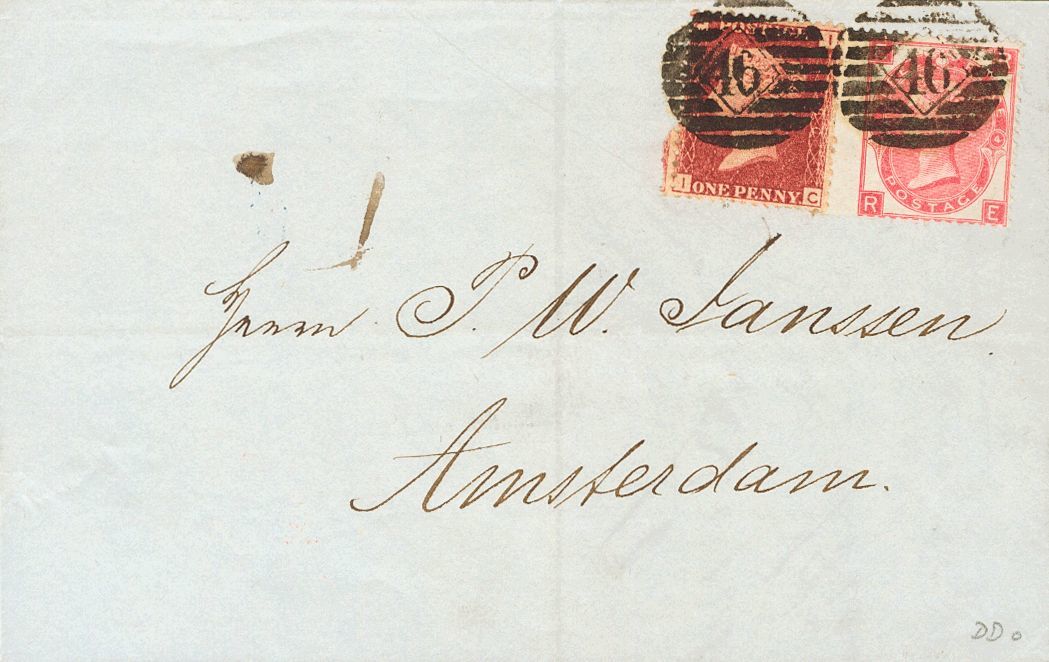 POSTAGE
I
46
46
4
I ONE PENNY. C
POSTAGE
R E
Herrn P. W. Janssen.
Amsterdam.
DD